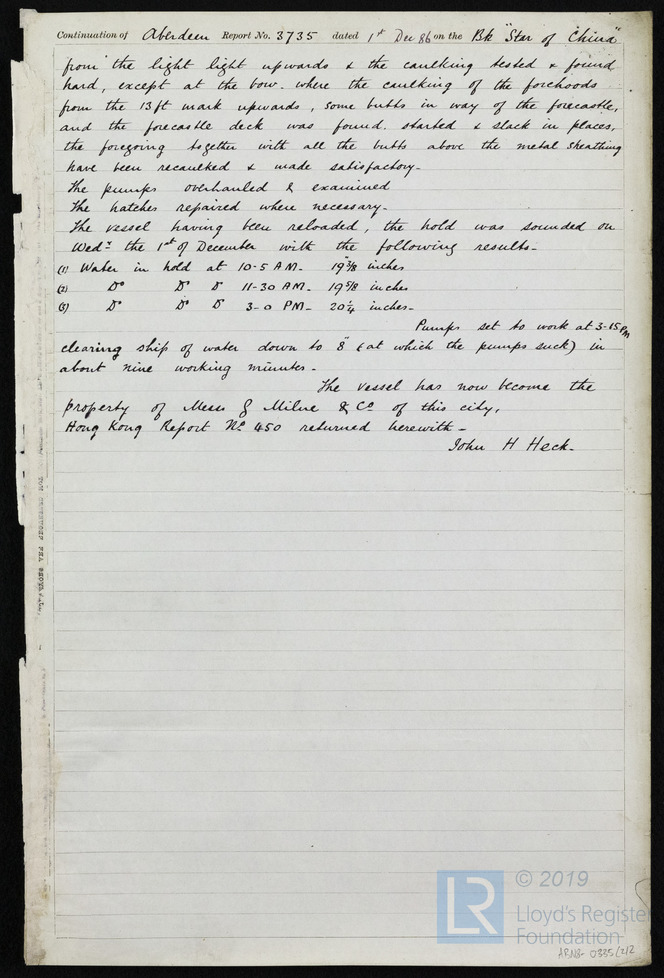 Continuation of Aberdeen Report No. 3735 dated 1st Dec 86 on the Bk "Star of China"
from the light light upwards & the caulking tested & found
hard, except at the bow. where the caulking of the forehoods
from the 13 ft mark upwards, some butts in way of the forecastle,
and the forecastle deck was found started & slack in places,
the foregoing together with all the butts above the metal sheathing
have been recaulked & made satisfactory-
The pumps overhauled & examined
The hatches repaired where necessary-
The vessel having been reloaded, the hold was sounded on
Wedy the 1st of December with the following results-
(1) Water in hold at 10-5 AM- 19 3/8 inches
(2) Do Do Do 11-30 AM- 19 5/8 inches
(3) Do Do Do 3-0 PM- 20 1/4 inches-
Pumps set to work at 3-15 PM
clearing ship of water down to 8" (at which the pumps suck) in
about nine working minutes-
The vessel has now become the
property of Mess G Milne & Co of this city,
Hong Kong Report No 450 returned herewith-
John H Heck-
© 2019
LR
Lloyd's Register
Foundation